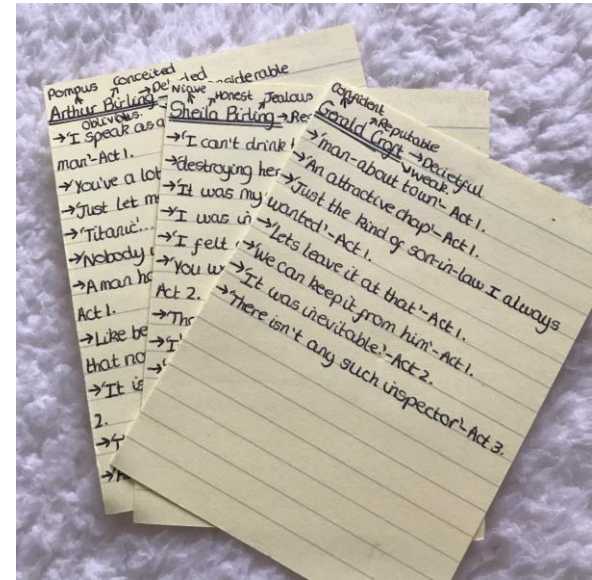 Pompus conceited
Arthur Birling
oblivous.
→'I speak as a
man'-Act 1.
→'You've a lot
→'Just let m
→'Titanic'...
→'Nobody
→'A man ha
Act 1.
→'Like be
that no
→'It is
2.
Niave Honest Jealous
Sheila Birling→Res
→'I can't drink
→'destroying her
→'It was my
→'I was in
→'I felt
→'You w
Act 2.
→'Tho
→'I
Confident
Reputable
Gerald Croft→Decietful
weak.
→'man-about town'-Act 1.
→'An attractive chap'-Act 1.
→'Just the kind of son-in-law I always
wanted'-Act 1.
→'Lets leave it at that'-Act 1.
→'We can keep it from him'-Act 1.
→'It was inevitable.'-Act 2.
→'There isn't any such inspector'-Act 3.